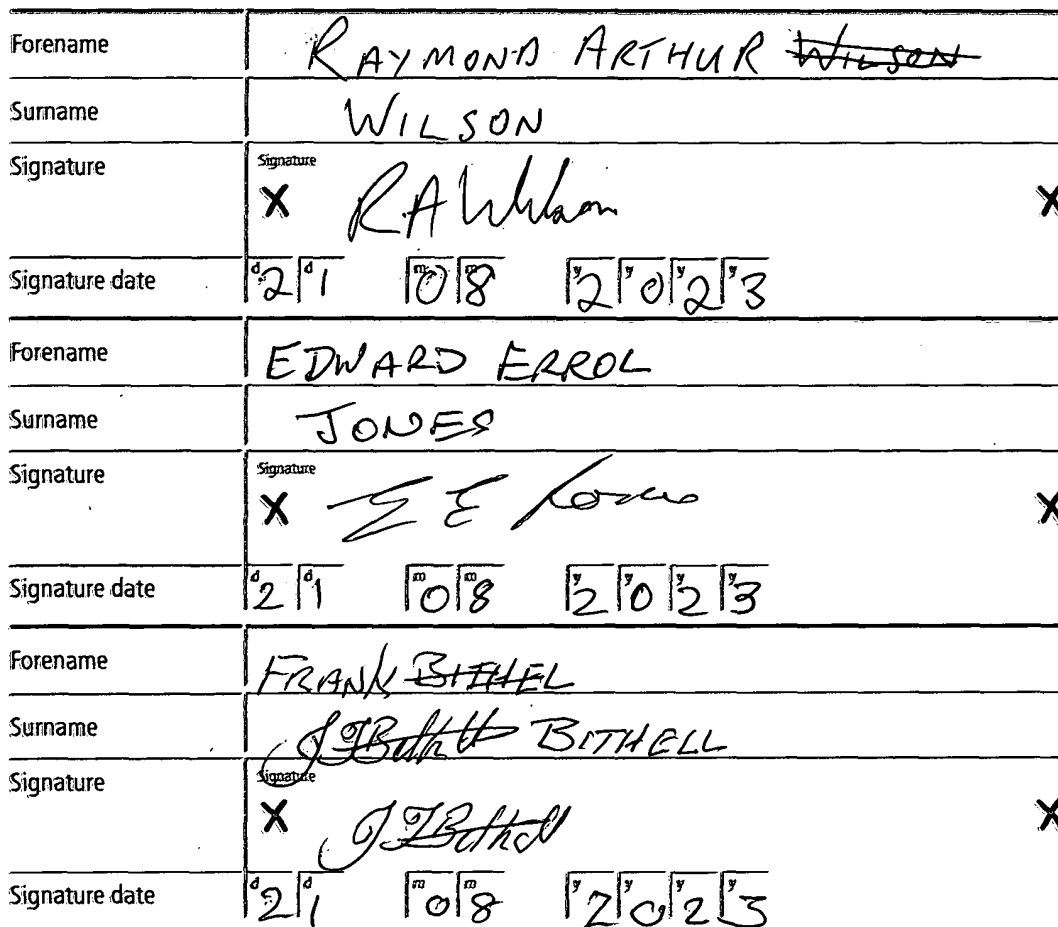 Forename RAYMOND ARTHUR WILSON
Surname WILSON
Signature Signature X RA Wilson X
Signature date d2 d1 m0 m8 y2 y0 y2 y3
Forename EDWARD ERROL
Surname JONES
Signature Signature X E E Jones X
Signature date d2 d1 m0 m8 y2 y0 y2 y3
Forename FRANK BITHEL
Surname JFBithell BITHELL
Signature Signature X JFBithell X
Signature date d2 d1 m0 m8 y2 y0 y2 y3